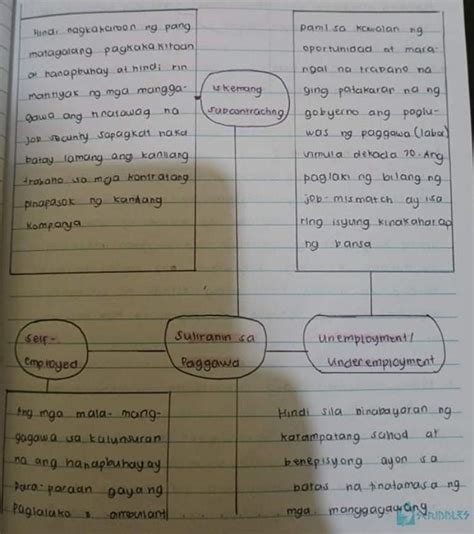 Hindi nagkakaroon ng pang
matagalang pagkakakitaan
at hanapbuhay at hindi rin
mantiyak ng mga mangga-
gawa ang tinatawag na
job security sapagkat naka
batay lamang ang kanilang
trabaho sa mga kontratang
pinapasok ng kanilang
kompanya
iskemang
subcontracting
pami sa kawalan ng
oportunidad at mara-
ngal na trabaho na
ging patakaran na ng
gobyerno ang paglu-
was ng paggawa (labor)
simula dekada 70. Ang
paglaki ng bilang ng
job-mismatch ay isa
ring isyung kinakaharap
ng bansa
Self-
employed
Suliranin sa
Paggawa
Unemployment/
Underemployment
Ang mga mala-mang-
gagawa sa kalunsuran
na ang hanapbuhay ay
para-paraan gayang
Paglalako, ambulant
Hindi sila binabayaran ng
karampatang sahod at
benepisyong ayon sa
batas na tinatamasa ng
mga manggagawang